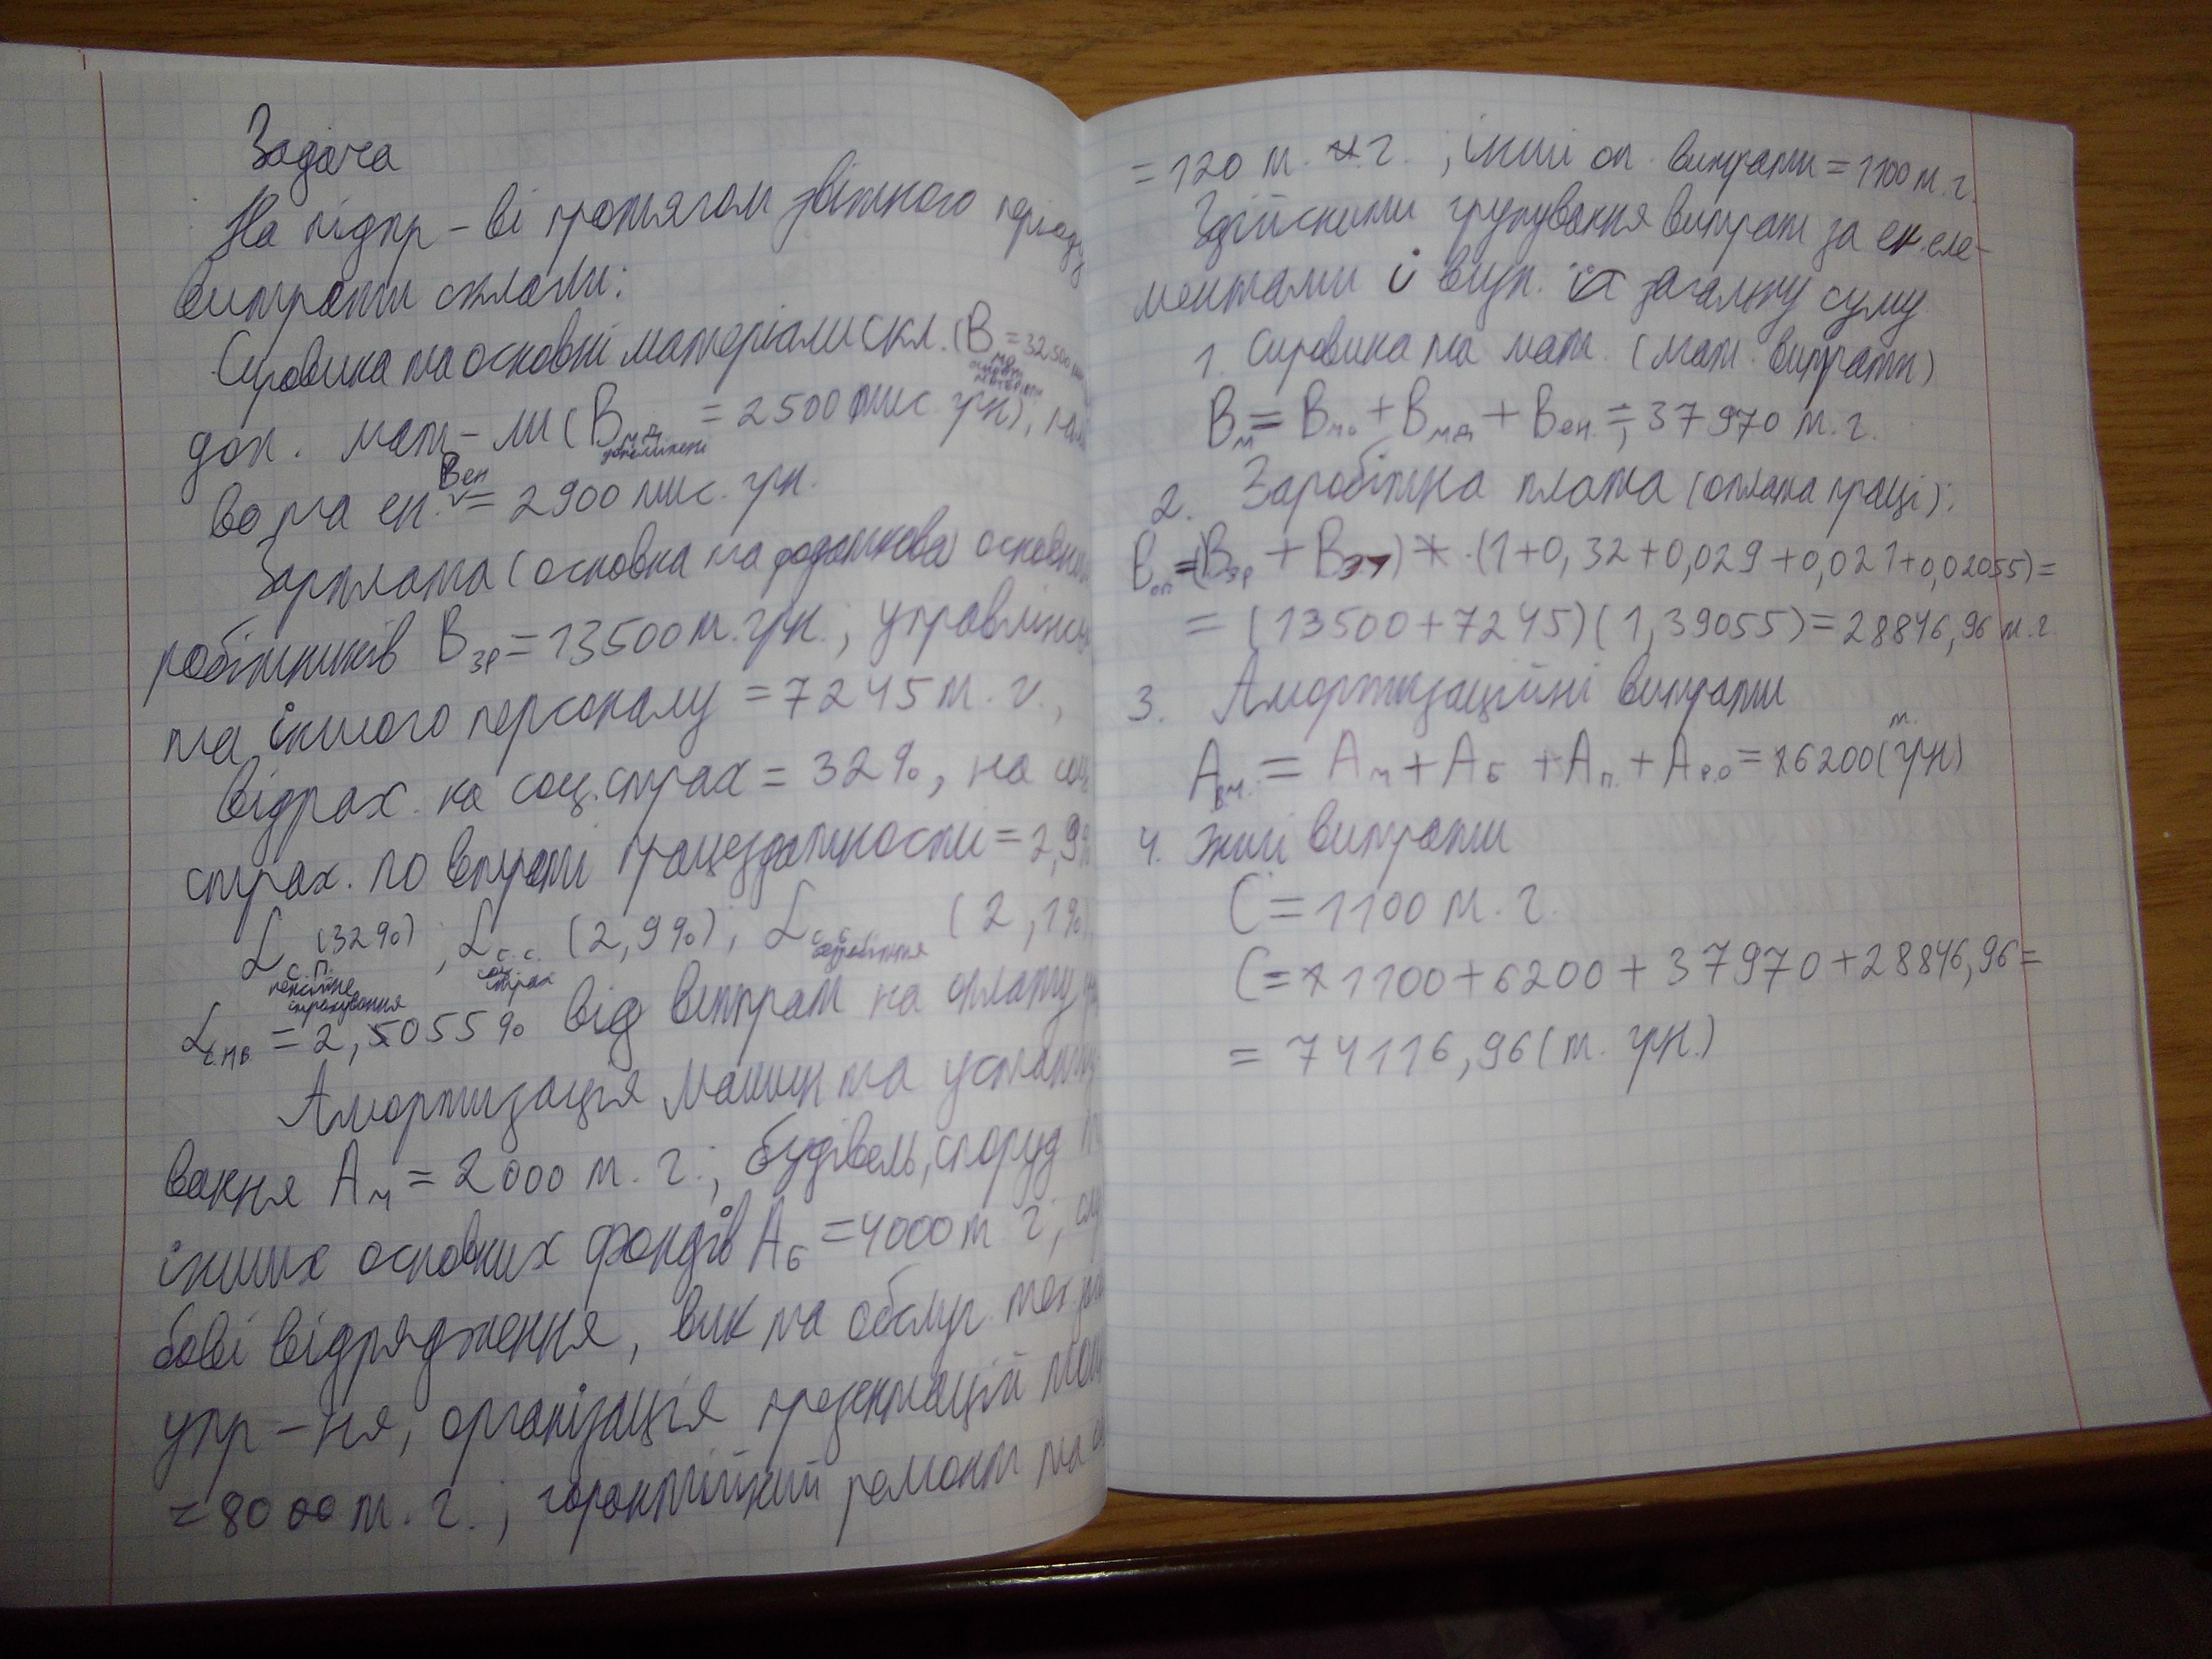 Задача
На підпр-ві протягом звітного періоду
витрати склали:
Сировина та основні матеріали скл. (В = 32500
мо
основні
матеріали
доп. мат-ли (Вмд = 2500 тис грн),
допоміжні
во та ен. Вен = 2900 тис. грн.
Зарплата (основна та додаткова) основних
робітників Взр = 13500 м. грн.; управлінсь
та іншого персоналу = 7245 т. г.,
відрах. на соц. страх = 32%, на соц
страх. по втраті працездатности = 2,9%
Lс.п. (32%); Lс.с. (2,9%); Lс.б. (2,1%
пенсійне
страхування
соц.
страх
безробіття
Lс.нв. = 2,5055% від витрат на оплату
Амортизація машин та устатку
вання Ам = 2000 т. г.; будівель, споруд
інших основних фондів Аб = 4000 т г; слу
бові відрядження, вик на обслуг. тех.
упр-ня, організація презентацій
= 8000 т. г.; гарантійний ремонт та
= 120 т. г. ; інші оп. витрати = 1100 т. г.
Здійснити групування витрат за ек. еле-
ментами і визн. їх загальну суму
1. Сировина та мат. (мат. витрати)
Вм = Вмо + Вмд + Вен. = 37970 т. г.
2. Заробітна плата (оплата праці):
Воп = (Взр + Взу) * (1+0,32+0,029+0,021+0,02055) =
= (13500+7245)(1,39055) = 28846,96 т. г.
3. Амортизаційні витрати
Авм. = Ам + Аб + Ап. + Аро = 6200 (т. грн)
4. Інші витрати
С = 1100 т. г.
С = 1100+6200+37970+28846,96 =
= 74116,96 (т. грн.)